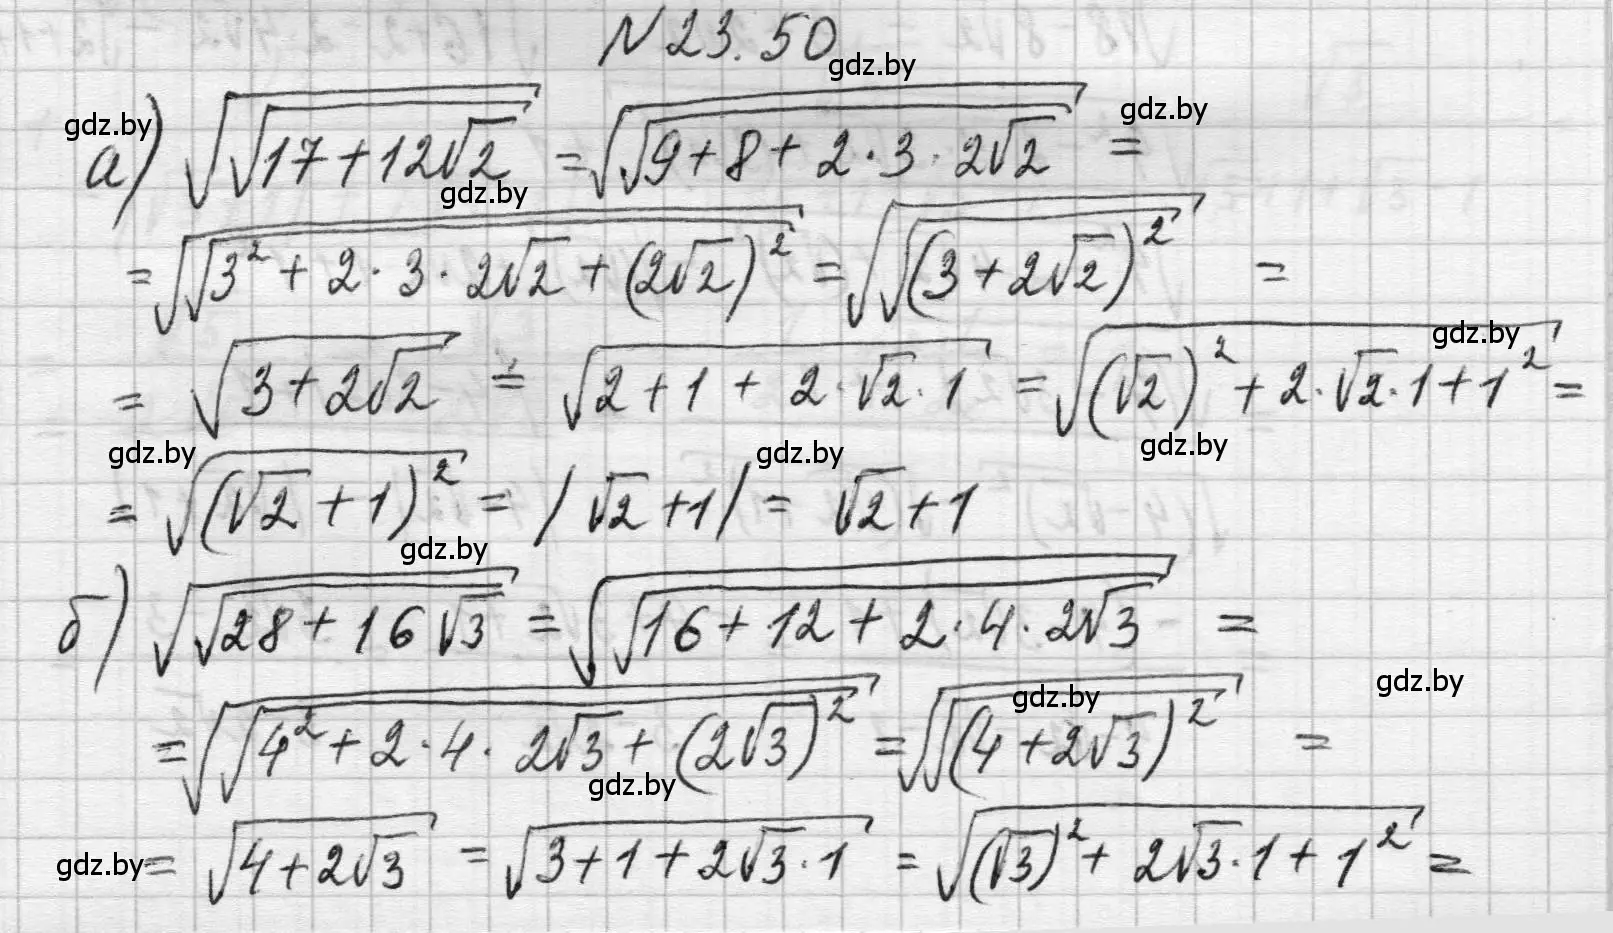 N 23.50
gdz.by
gdz.by
gdz.by
а) √(√(17+12√2)) = √(√(9+8+2·3·2√2)) =
gdz.by
= √(√(3²+2·3·2√2+(2√2)²)) = √(√((3+2√2)²)) =
gdz.by
= √(3+2√2) = √(2+1+2·√2·1) = √((√2)²+2·√2·1+1²) =
gdz.by
gdz.by
gdz.by
= √((√2+1)²) = |√2+1| = √2+1
gdz.by
б) √(√(28+16√3)) = √(√(16+12+2·4·2√3)) =
gdz.by
gdz.by
= √(√(4²+2·4·2√3+(2√3)²)) = √(√((4+2√3)²)) =
gdz.by
gdz.by
= √(4+2√3) = √(3+1+2√3·1) = √((√3)²+2√3·1+1²) =